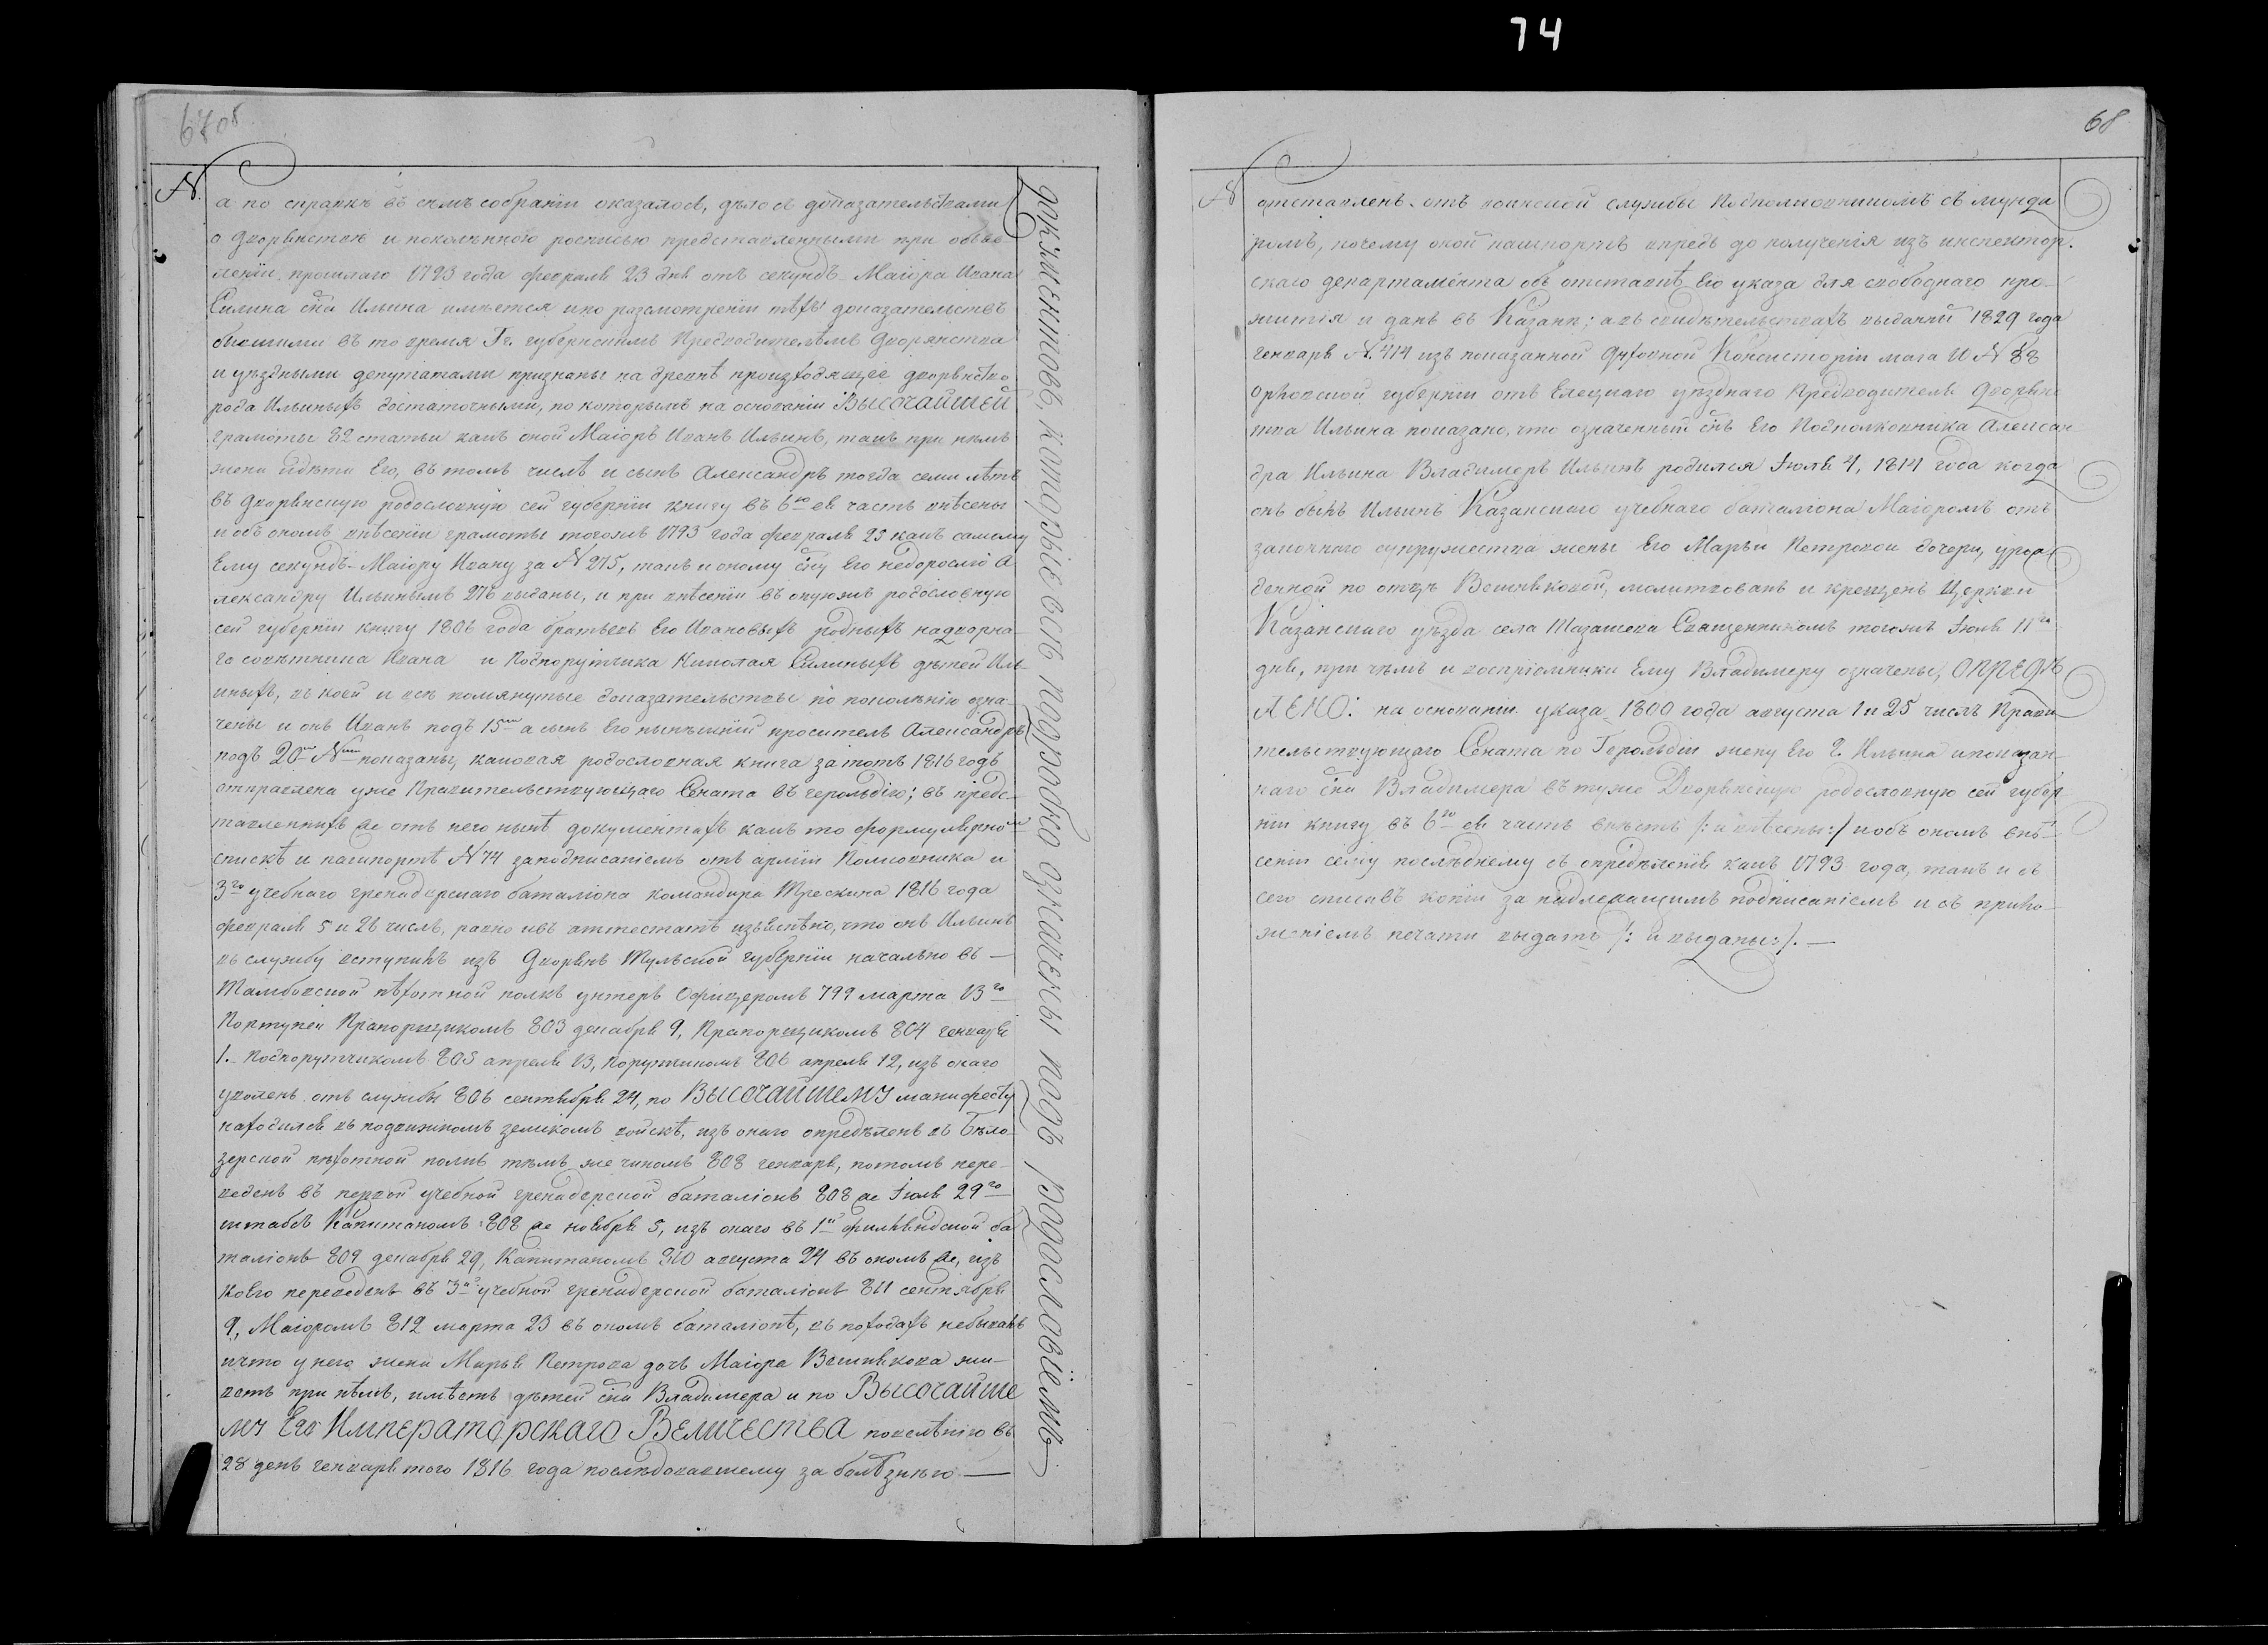 74
67об
N.
а по справкѣ въ семъ собранiи оказалось, дѣло съ доказательствами
о дворянствѣ и поколѣнною росписью представленными при объяв
ленiи прошлаго 1793 года февраля 23 дня отъ секундъ-Маiора Ивана
Силина сна Ильина имѣется и по разсмотренiи тѣхъ доказательствъ
бывшими въ то время Гг. губернскимъ Предводителемъ дворянства
и уѣздными депутатами признаны на древнѣ произходящее дворянство
рода Ильиныхъ достаточными, по которымъ на основанiи ВЫСОЧАЙШЕЙ
грамоты 82 статьи какъ оной Маiоръ Иванъ Ильинъ, такъ при немъ
жена и дѣти Его, въ томъ числѣ и сынъ Александръ тогда семи лѣтъ
въ дворянскую родословную сей губернiи книгу въ 6ю ея часть внѣсены
и объ ономъ внѣсенiи грамоты тогожъ 1793 года февраля 23 какъ самому
Ему секундъ-Маiору Ивану за N 275, такъ и оному сну Его недорослю А
лександру Ильинымъ 276 выданы, и при внѣсенiи въ оную жъ родословную
сей губернiи книгу 1806 года братьевъ Его Ивановыхъ родныхъ надворна
го совѣтника Ивана и Подпорутчика Николая Силиныхъ дѣтей Иль
иныхъ, въ коей и всѣ помянутые доказательствы по поколѣнiю озна
чены и онъ Иванъ подъ 15мъ а сынъ Его нынѣшнiй проситель Александръ
подъ 20мъ Nми показаны, каковая родословная книга за тотъ 1816 годъ
отправлена уже Правительствующаго Сената въ герольдiю; въ предс
тавленныхъ же отъ него нынѣ документахъ какъ то формулярномъ
спискѣ и пашпортѣ N 74 заподписанiемъ отъ армiи Полковника и
3го учебнаго гренадерскаго баталiона командира Трескина 1816 года
февраля 5 и 26 числъ, равно и въ аттестатѣ изъяснѣно, что онъ Ильинъ
въ службу вступилъ изъ дворянъ Тульской губернiи начально въ —
Тамбовской пѣхотной полкъ унтеръ Офицеромъ 799 марта 13го
Портупей Прапорщикомъ 803 декабря 9, Прапорщикомъ 804 генваря
1. Подпорутчикомъ 805 апреля 13, Порутчикомъ 806 апреля 12, изъ онаго
уволенъ отъ службы 806 сентября 24, по ВЫСОЧАЙШЕМУ манифесту
находился въ подвижномъ земскомъ войскѣ, изъ онаго опредѣленъ въ Бѣло
зерской пѣхотной полкъ тѣмъ же чиномъ 808 генваря, потомъ пере
веденъ въ первой учебной гренадерской баталiонъ 808 же Iюля 29го
штабсъ Капитаномъ 808 же ноября 5, изъ онаго въ 1й Финляндской ба
талiонъ 809 декабря 29, Капитаномъ 810 августа 24 въ ономъ же, изъ
коего переведенъ въ 3й учебной гренадерской баталiонъ 811 сентября
9, Маiоромъ 812 марта 23 въ ономъ баталiонѣ, въ походахъ небывалъ
и что у него жена Марья Петрова дочь Маiора Вешнякова жи
ветъ при нѣмъ, имѣетъ дѣтей сна Владимера и по ВЫСОЧАЙШЕ
МУ ЕГО ИМПЕРАТОРСКАГО ВЕЛИЧЕСТВА повелѣнiю въ
28 день генваря того 1816 года последовавшему за болѣзнью —
документовъ, которые всѣ подробно означены подъ родословiемъ
68
N
отставленъ отъ воинской службы Подполковникомъ съ мунди
ромъ, почему оной пашпортъ впредь до полученiя изъ инспектор
скаго департамента объ отставкѣ Его указа для свободнаго про
житiя и данъ въ Казани; а въ свидѣтельствахъ выданныхъ 1829 года
генваря N. 414 изъ показанной духовной Консисторiи мая 10 N 88
Орловской губернiи отъ Елецкаго уѣзднаго Предводителя Дворянс
тва Ильина показано, что означенный снъ Его Подполковника Алексан
дра Ильина Владимеръ Ильинъ родился Iюля 4, 1814 года когда
онъ былъ Ильинъ Казанскаго учебнаго баталiона Маiоромъ отъ
законнаго супружества жены Его Марьи Петровой дочери, урож
денной по отцѣ Вешняковой, молитвованъ и крещенъ Церкви
Казанскаго уѣзда села Священникомъ тогожъ Iюля 11го
дня, при чѣмъ и воспрiемники Ему Владимеру означены, ОПРЕДѢ
ЛЕНО: на основанiи указа 1800 года августа 1 и 25 числъ Прави
тельствующаго Сената по Герольдiи жену Его Г. Ильина и показан
наго сна Владимера въ туже Дворянскую родословную сей губер
нiи книгу въ 6ю ея часть внѣсть /: и внѣсены :/ и объ ономъ внѣ
сенiи сему послѣднему съ опредѣленiя какъ 1793 года, такъ и съ
сего списавъ копiи за надлежащимъ подписанiемъ и съ прило
женiемъ печати выдать /: и выданы :/. —